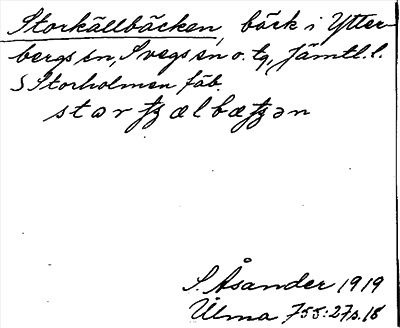 Storkällbäcken, bäck i Ytter-
bergs sn, Svegs sn o. tg, Jämtl. l.
S Storholmen fäb.
S. Åsander 1919
Ulma 755:27 s. 18